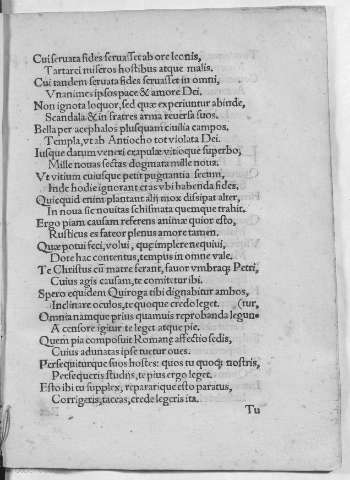 Cui seruata fides seruasset ab ore leonis,
Tartarei miseros hostibus atque malis.
Cui tandem seruata fides seruasset in omni,
Vnanimes ipsos pace & amore Dei.
Non ignota loquor, sed quæ experiuntur abinde,
Scandala & in fratres arma reuersa suos.
Bella per acephalos plusquam ciuilia campos.
Templa, vt ab Antiocho tot violata Dei.
Iusque datum veneri exculæ vitioque superbo,
Mille nouas sectas dogmata mille noua.
Vt vitium cuiusque petit pugnantia sectum,
Inde hodie ignorant cras vbi habenda fides,
Quicquid enim plantant alij mox dissipat alter,
In noua sic nouitas schismata quemque trahit.
Ergo piam causam referens animæ quior esto,
Rusticus es fateor plenus amore tamen.
Quæ potui feci, volui, quæ implere nequiui,
Dote hac contentus, tempus in omne vale.
Te Christus cū matre ferant, fauor vmbraq; Petri,
Cuius agis causam, te comitetur ibi.
Spero equidem Quiroga tibi dignabitur ambos,
Inclinare oculos, te quoque credo leget. (tur,
Omnia namque prius quamuis reprobanda legun-
A censore igitur te leget atque pie.
Quem pia composuit Romanę affectio sedis,
Cuius adunatas ipse tuetur oues.
Persequiturque suos hostes: quos tu quoq; nostris,
Persequeris studijs, te pius ergo leget.
Esto ibi tu supplex, reparari que esto paratus,
Corrigeris, taceas, crede legeris ita.
Tu